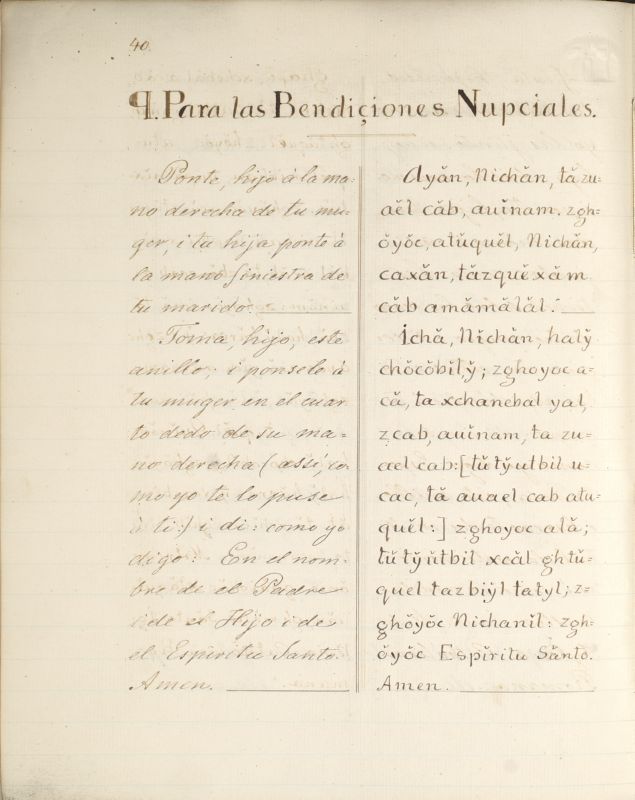 40.
¶. Para las Bendiçiones Nupciales.
Ponte, hijo à la ma-
no derecha de tu mu-
ger, i tu hija ponte à
la mano siniestra de
tu marido.
Toma, hijo, este
anillo; i ponselo à
tu muger en el cuar
to dedo de su ma=
no derecha (assi, co-
mo yo te lo puse
à ti:) i di: como yo
digo: En el nom-
bre de el Padre
i de el Hijo i de
el Espiritu Santo.
Amen.
Ayăn, Nichăn, tă zu=
aĕl căb, auĭnam. zgh=
ŏyŏc, atŭquĕl, Nichăn,
caxăn, tăzquĕxăm
căb amămălăl.
Ichă, Nĭchăn, halў
chŏcŏbĭl,ў; zghoyoc a=
că, ta xchanebal yal,
zcab, auĭnam, ta zu=
ael cab:[tŭ tўutbil u=
cac, tă auael cab atu=
quĕl:] zghoyoc ală;
tŭ tўŭtbil xcăl ghtŭ=
quel tazbiўl tatyl; z=
ghŏyŏc Nichanĭl: zgh=
ŏyŏc Espĭritu Sănto.
Amen.